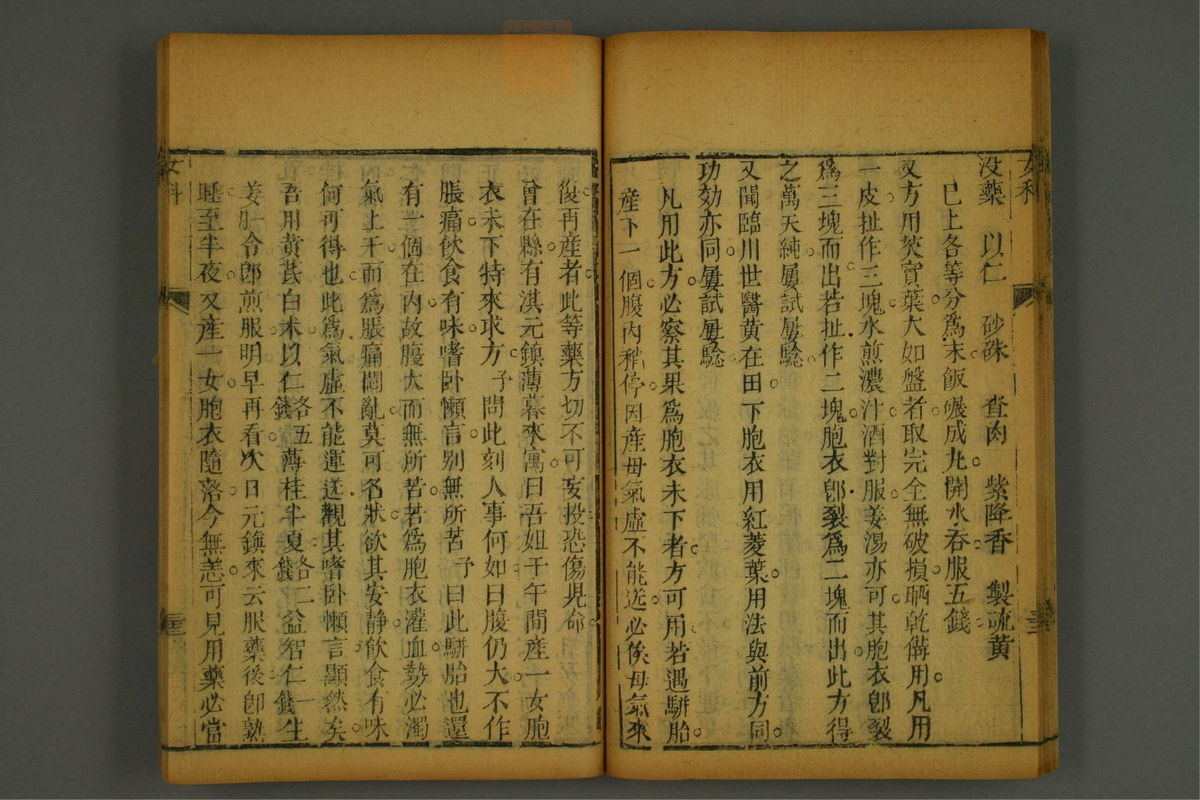 女科
没藥 以仁 砂硃 查肉 紫降香 製硫黃
已上各等分為末飯碾成丸開水吞服五錢
又方用芡實葉大如盤者取完全無破損晒乾俻用凡用
一皮扯作三塊水煎濃汁酒對服姜湯亦可其胞衣卽裂
為三塊而出若扯作二塊胞衣卽裂為二塊而出此方得
之萬天純屢試屢騐
又聞臨川世醫黃在田下胞衣用紅菱葉用法與前方同
功効亦同屢試屢騐
凡用此方必察其果為胞衣未下者方可用若遇駢胎
產下一個腹內稍停因產母氣虛不能送必俟母氣來
復再產者此等藥方切不可妄投恐傷児命
曾在縣有淇元鎮薄暮來寓曰吾姐于午間產一女胞
衣未下特來求方予問此刻人事何如曰腹仍大不作
脹痛飲食有味嗜卧懶言别無所苦予曰此駢胎也還
有一個在內故腹大而無所苦若為胞衣灌血勢必濁
氣上干而為脹痛悶亂莫可名狀欲其安静飲食有味
何可得也此為氣虛不能運送觀其嗜卧懶言顯然矣
吾用黃芪白术以仁各五錢薄桂半夏各二錢益智仁一錢生
姜汁合卽煎服明早再看次日元鎮來云服藥後卽熟
睡至半夜又產一女胞衣隨落今無恙可見用藥必當
女科